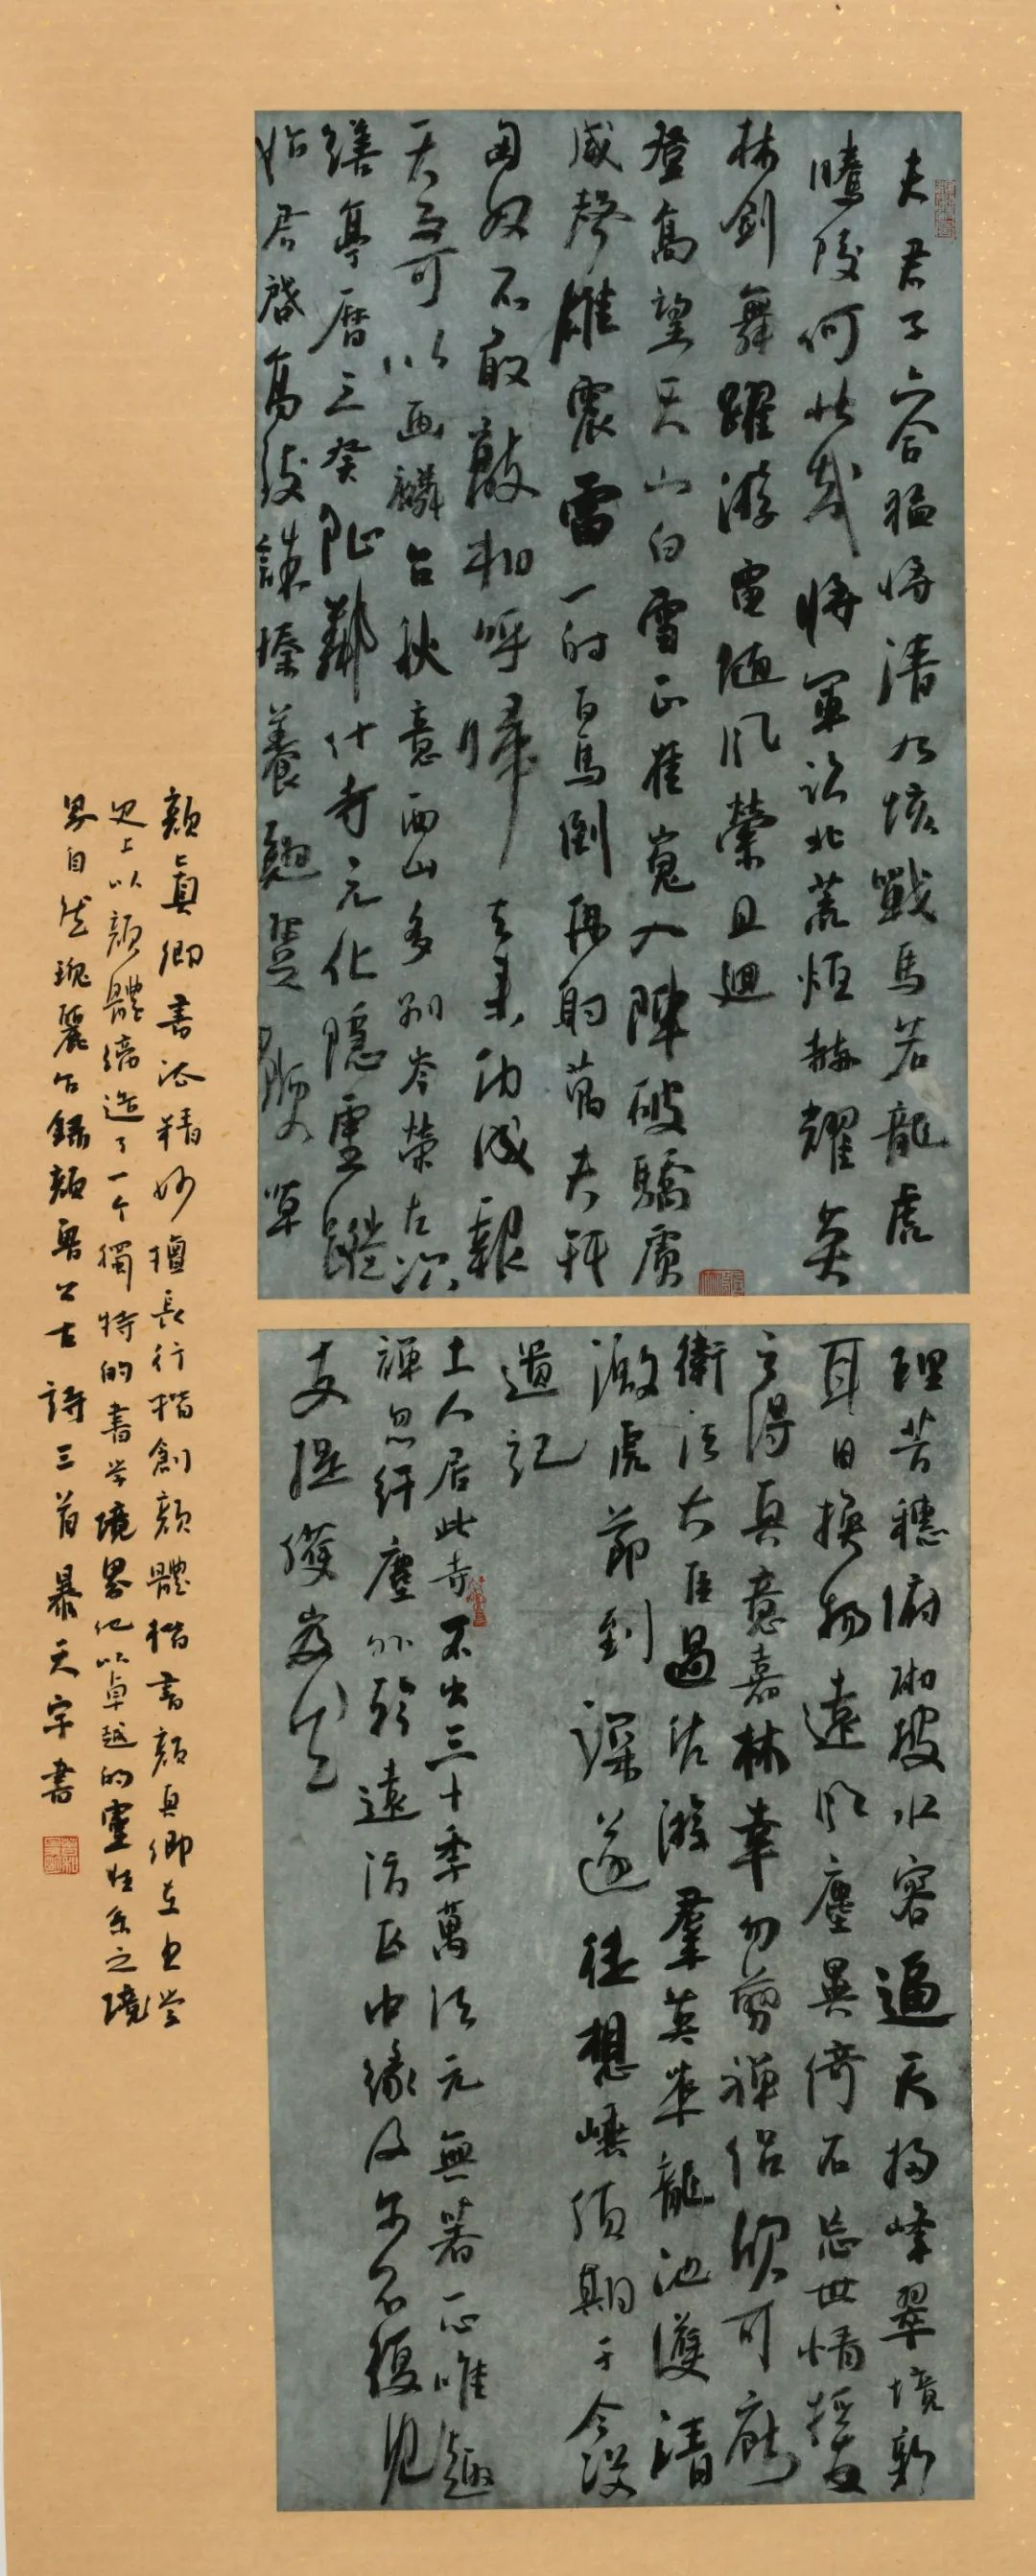 夫君子六合猛將清九垓戰馬若龍虎
騰陵何壯哉將軍臨北荒烜赫耀英
林劍舞躍游電隨風縈且迴
登高望天山白雪正崔嵬入陣破驕虜
威聲雄震雷一射百馬倒再射萬夫開
匈奴不敢敵相呼歸去來功成報
天子可以畫麟台秋意西山多列岑縈左次
繕亭曆三癸阯鄰什寺元化隱靈蹤
始君啓高誅榛養翹
理苦穗俯砌披水容逼天掃峰翠境新
耳目換物遠風塵異倚石忘世情援
之得真意嘉林幸勿剪禪侶欣可
衛法大臣過佐游羣英萃龍池護清
激虎節到深邃徒想嵊頂期于今沒
遺記
士人居此寺不出三十季萬法元無著一心唯趣
禪忽紆塵外軫遠訪區中緣及尔不復見
支提獲岌然
顏真卿書法精妙擅長行楷創顏體楷書顏真卿在書学
史上以顏體締造了一个獨特的書学境界他以卓越的靈性系之境
界自然瑰麗今錄顏魯公古詩三首暴天宇書